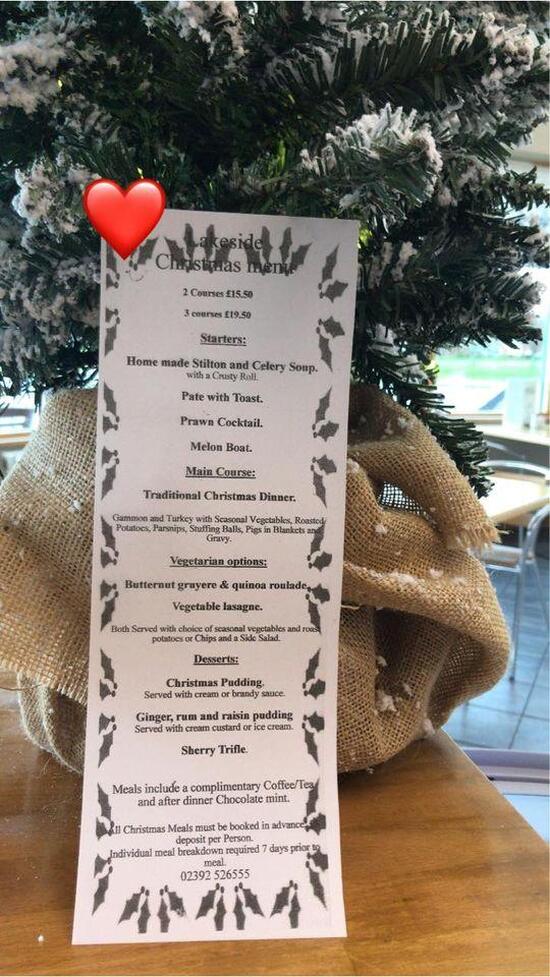 Lakeside
Christmas menu
2 Courses £15.50
3 courses £19.50
Starters:
Home made Stilton and Celery Soup.
with a Crusty Roll.
Pate with Toast.
Prawn Cocktail.
Melon Boat.
Main Course:
Traditional Christmas Dinner.
Gammon and Turkey with Seasonal Vegetables, Roasted
Potatoes, Parsnips, Stuffing Balls, Pigs in Blankets and
Gravy.
Vegetarian options:
Butternut gruyere & quinoa roulade.
Vegetable lasagne.
Both Served with choice of seasonal vegetables and roast
potatoes or Chips and a Side Salad.
Desserts:
Christmas Pudding.
Served with cream or brandy sauce.
Ginger, rum and raisin pudding
Served with cream custard or ice cream.
Sherry Trifle.
Meals include a complimentary Coffee/Tea
and after dinner Chocolate mint.
All Christmas Meals must be booked in advance
deposit per Person.
Individual meal breakdown required 7 days prior to
meal.
02392 526555